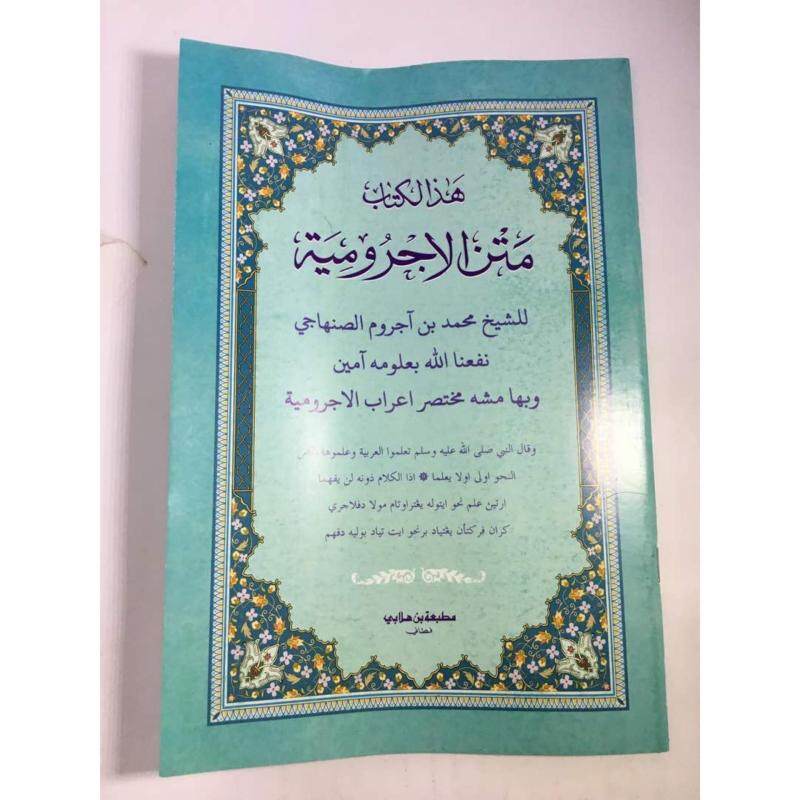 هذا الكتاب
متن الاجرومية
للشيخ محمد بن آجروم الصنهاجي
نفعنا الله بعلومه آمين
وبها مشه مختصر اعراب الاجرومية
وقال النبي صلى الله عليه وسلم تعلموا العربية وعلموها الناس
النحو اولى اولا يعلما * اذا الكلام دونه لن يفهما
ارتين علم نحو ايتوله يڠتراوتام مولا دفلاجري
كران ڤركتأن يڠتياد برنحو ايت تياد بوليه دفهم
مطبعة بن هلابي
فطاني